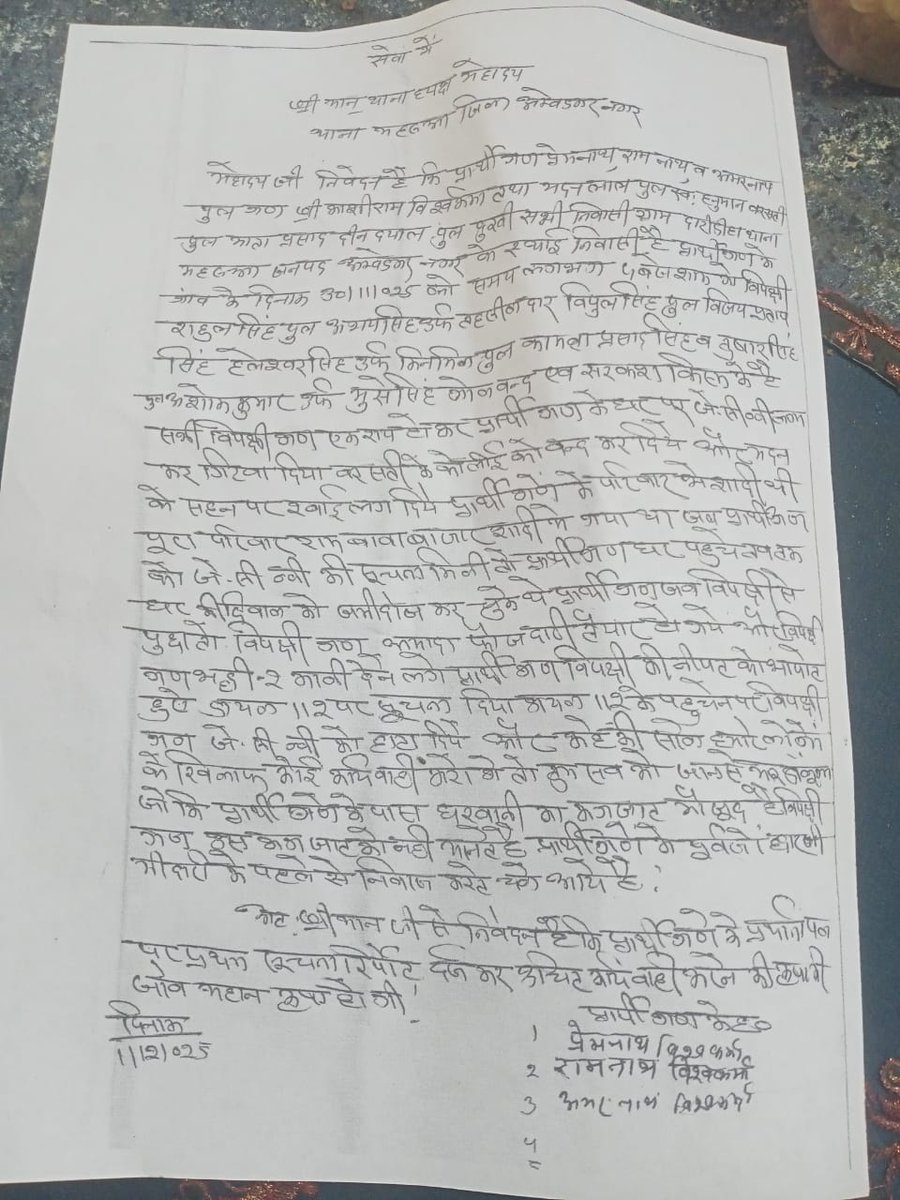 सेवा में
श्री मान थानाध्यक्ष महोदय
थाना महरुआ जिला अम्बेडकर नगर
महोदय जी निवेदन है कि प्रार्थी गण प्रेमनाथ, राम नाथ व अमरनाथ
पुत्र गण श्री काशीराम विश्वकर्मा तथा मदन लाल पुत्र स्व: हनुमान
पुत्र माता प्रसाद दीन दयाल पुत्र सभी निवासी ग्राम थाना
महरुआ जनपद अम्बेडकर नगर के स्थाई निवासी है प्रार्थी गण के
गांव के दिनांक 30/11/025 को समय लगभग बजे शाम को विपक्षी
राहुल सिंह पुत्र अभयसिंह उर्फ तहसीलदार विपुल सिंह पुत्र विजय प्रताप
सिंह उर्फ पुत्र कामता प्रसाद सिंह व तुषार सिंह
पुत्र अशोक कुमार उर्फ सिंह एवं सरकश किस्म के है
सभी विपक्षी गण एक राय होकर प्रार्थी गण के घर पर जे.सी.वी
कर गिरवा दिया को बन्द कर दिये और मदन
के सहन पर लगा दिये प्रार्थी गण के परिवार में शादी थी
पूरा परिवार राम बाबा बाजार शादी में गया था जब प्रार्थीगण
को जे.सी.वी की सूचना मिली तो प्रार्थीगण घर पहुचे तब तक
घर की दिवाल को जमीदोज कर चुके थे प्रार्थी गण जब विपक्षी से
पुछा तो विपक्षी गण आमादा फौजदारी तैयार हो गये और विपक्षी
गण भद्दी-२ गाली देने लगे प्रार्थी गण विपक्षी की नीयत को भापते
हुए डायल 112 पर सूचना दिया डायल 112 के पहुचने पर विपक्षी
गण जे.सी.वी को हटा दिये और कहे की लोगों
के खिलाफ कोई कार्यवाही करोगे तो हम सब को जान से
जो कि प्रार्थी गण के पास का कागजात मौजूद है विपक्षी
गण इस कागजात को नहीं मानते है प्रार्थी गण के पूर्वजों
के पहले से निवास करते चले आये है।
अत: श्रीमान जी से निवेदन है कि प्रार्थी गण के प्रार्थना पत्र
पर प्रथम सूचना रिपोर्ट दर्ज कर उचित कार्यवाही करने की कृपा की
जाव महान कृपा होगी।
दिनांक
1/12/025
प्रार्थी गण
1 प्रेमनाथ विश्वकर्मा
2 रामनाथ विश्वकर्मा
3 अमर नाथ विश्वकर्मा
4